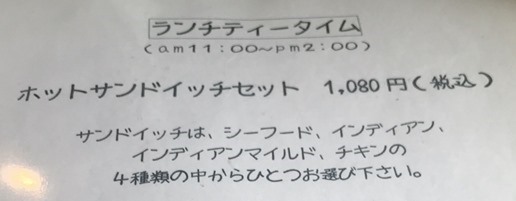 ランチティータイム
(am11:00~pm2:00)
ホットサンドイッチセット 1,080円(税込)
サンドイッチは、シーフード、インディアン、
インディアンマイルド、チキンの
4種類の中からひとつお選び下さい。